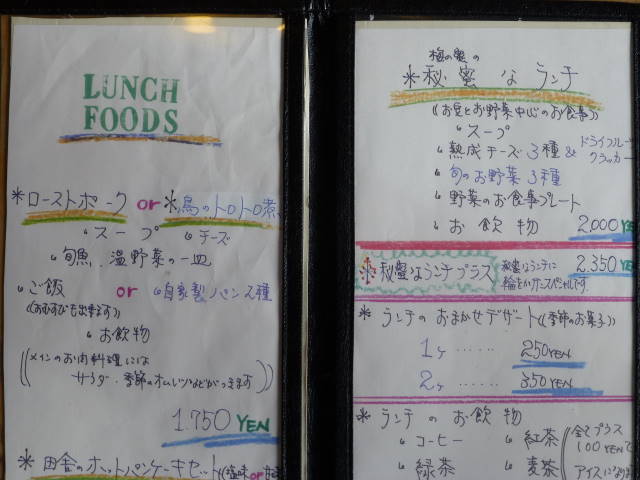 LUNCH
FOODS
*ローストポーク or *鳥のトロトロ煮
スープ チーズ
旬魚、温野菜の一皿
ご飯 or 自家製パン2種
((おむすびも出来ます))
お飲物
((メインのお肉料理には
サラダ・季節のオムレツなどがつきます))
1.750 YEN
*田舎のホットパンケーキセット
の
*秘蜜なランチ
((お豆とお野菜中心のお食事))
スープ
熟成チーズ3種 & ドライフルーツ
クラッカー
旬のお野菜3種
野菜のお食事プレート
お飲物 2,000 YE
*秘蜜なランチプラス 秘蜜なランチに
スペシャルです。 2.350 YE
*ランチのおまかせデザート((季節のお菓子))
1ヶ …… 250 YEN
2ヶ …… 350 YEN
*ランチのお飲物
コーヒー 紅茶
緑茶 麦茶
全てプラス
100 YENで
アイスになり